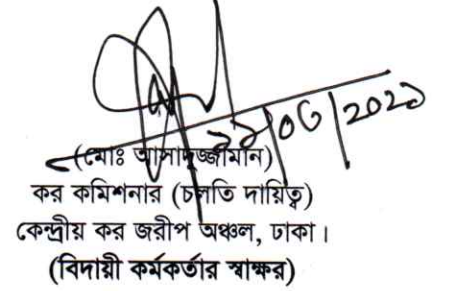 ২২/০৬/২০২১
(মোঃ আসাদুজ্জামান)
কর কমিশনার (চলতি দায়িত্ব)
কেন্দ্রীয় কর জরীপ অঞ্চল, ঢাকা।
(বিদায়ী কর্মকর্তার স্বাক্ষর)